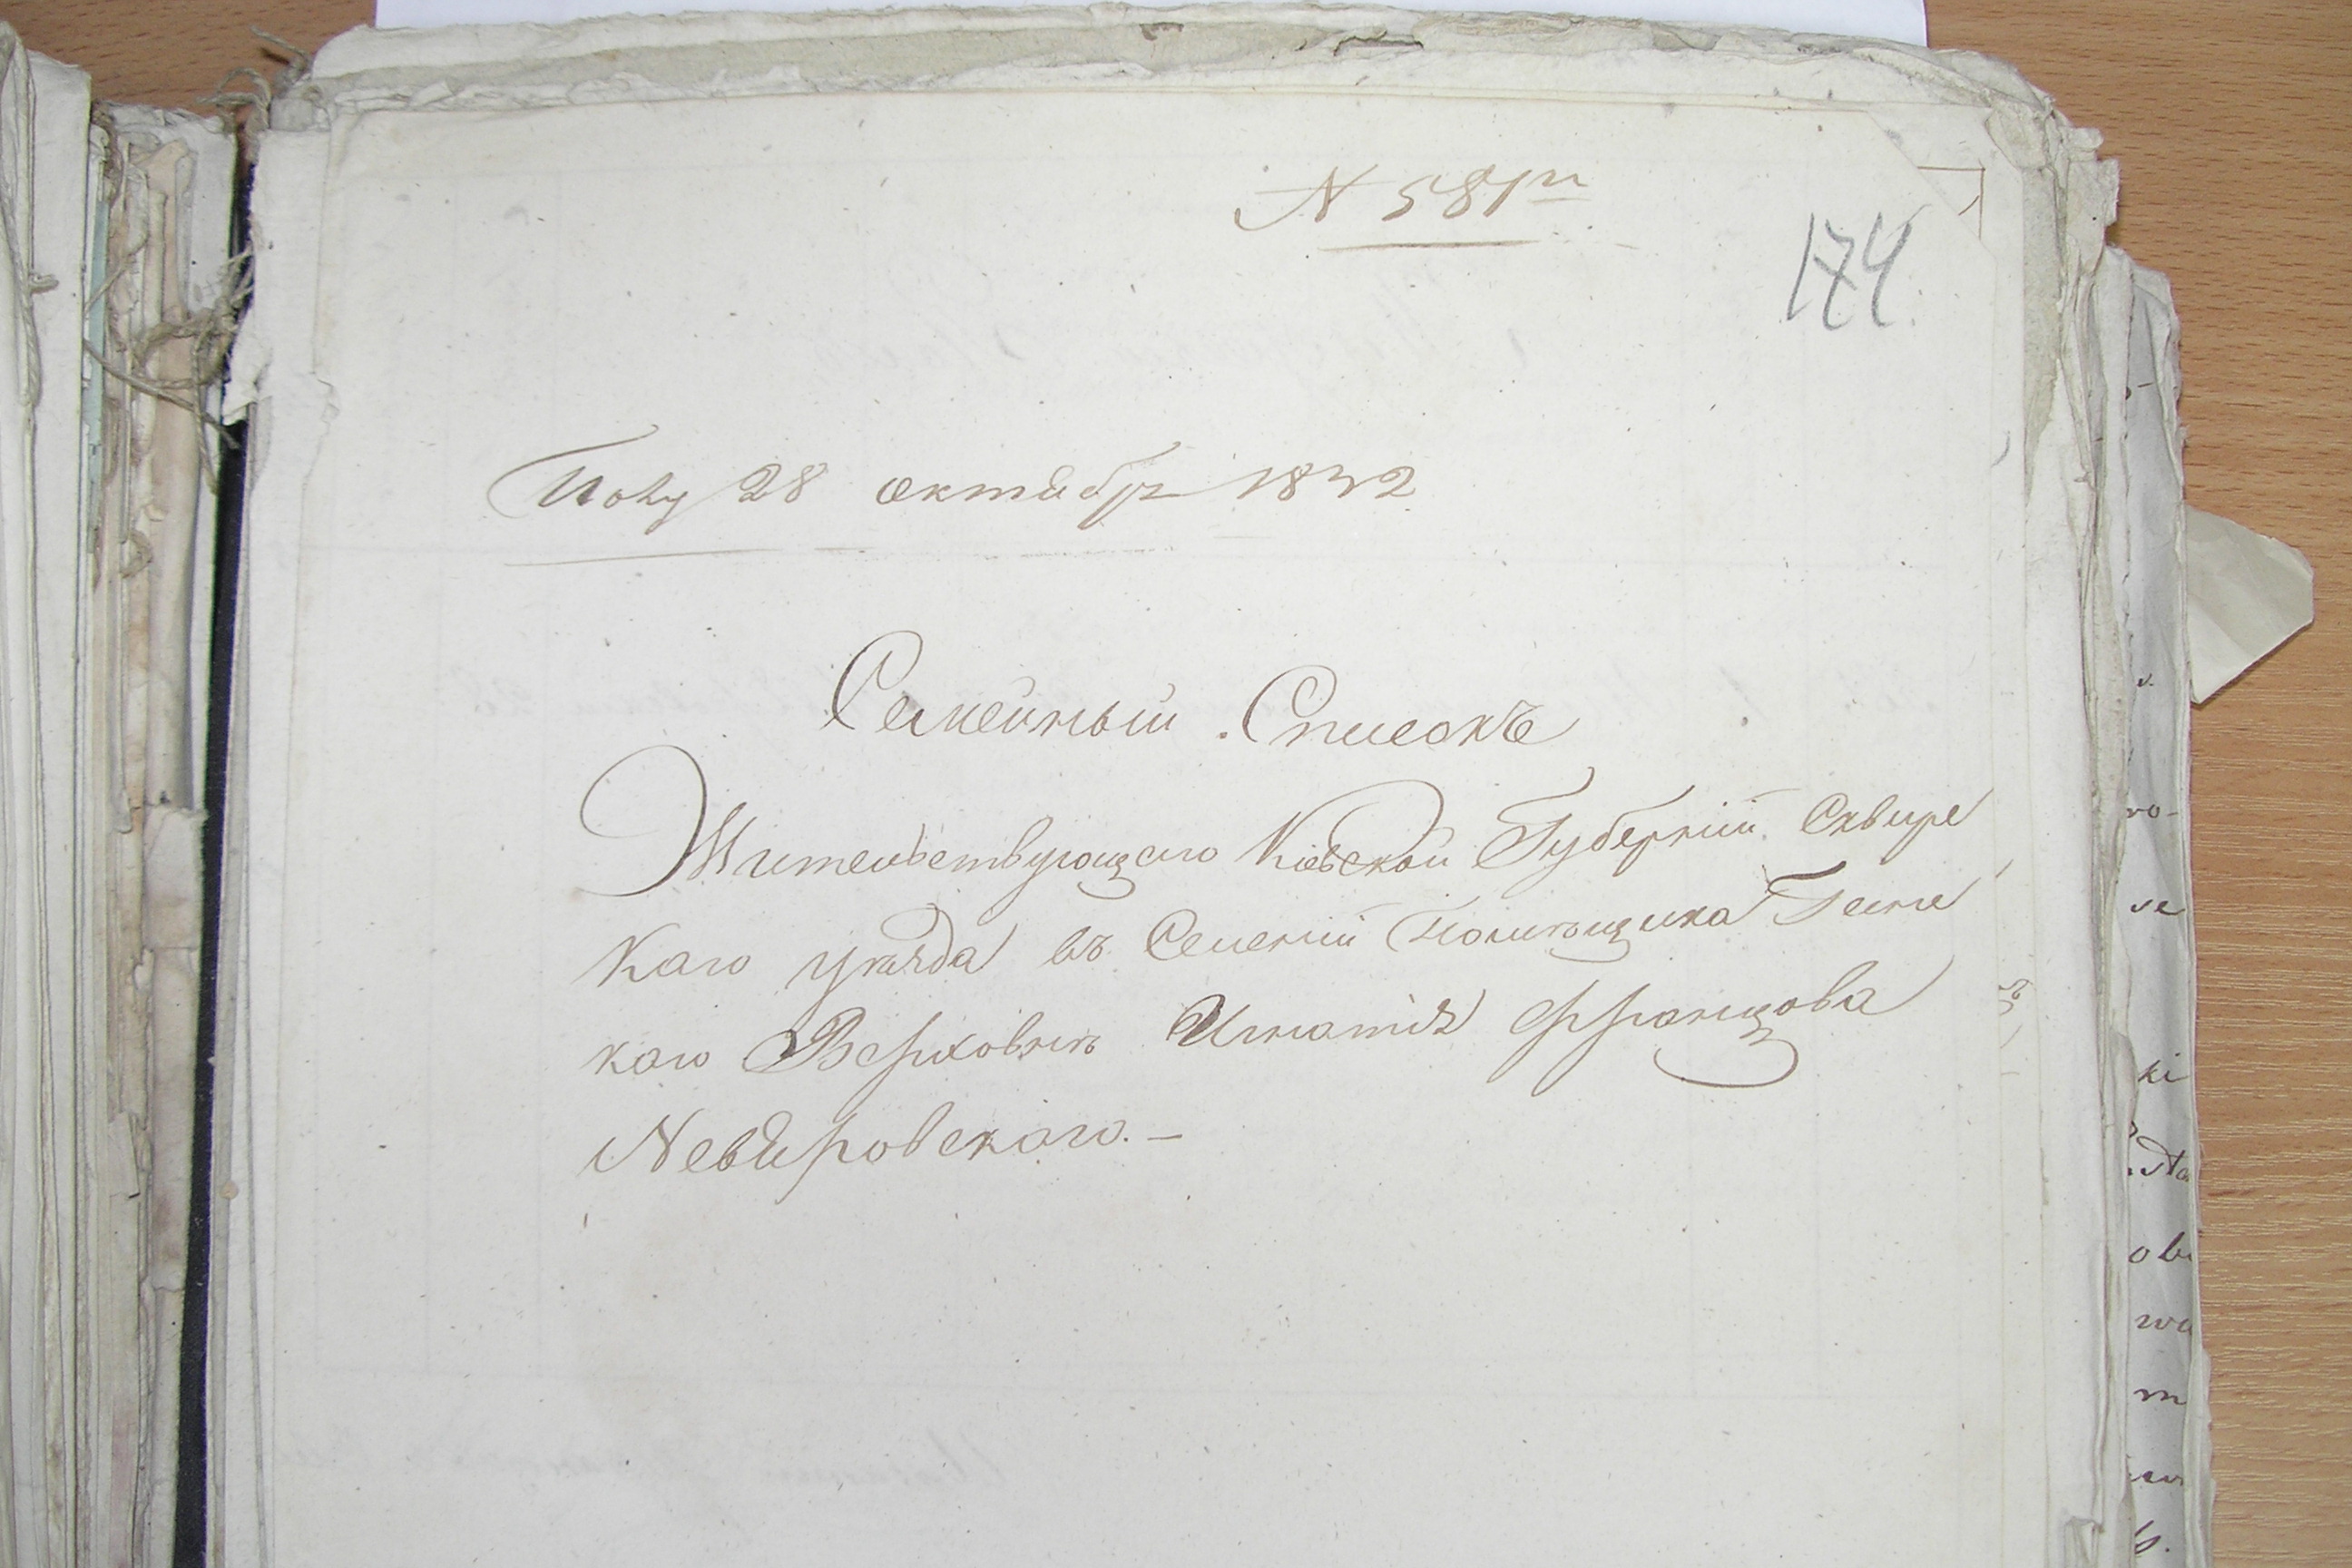 N 581й
174
Полу 28 октября 1832
Семейный Списокъ
Жительствующаго Киевской Губернiи Сквирс
каго уѣзда въ Селенiи Помѣщика Ганс
каго Верховнѣ Игнатiя Францова
Невяровскаго. –